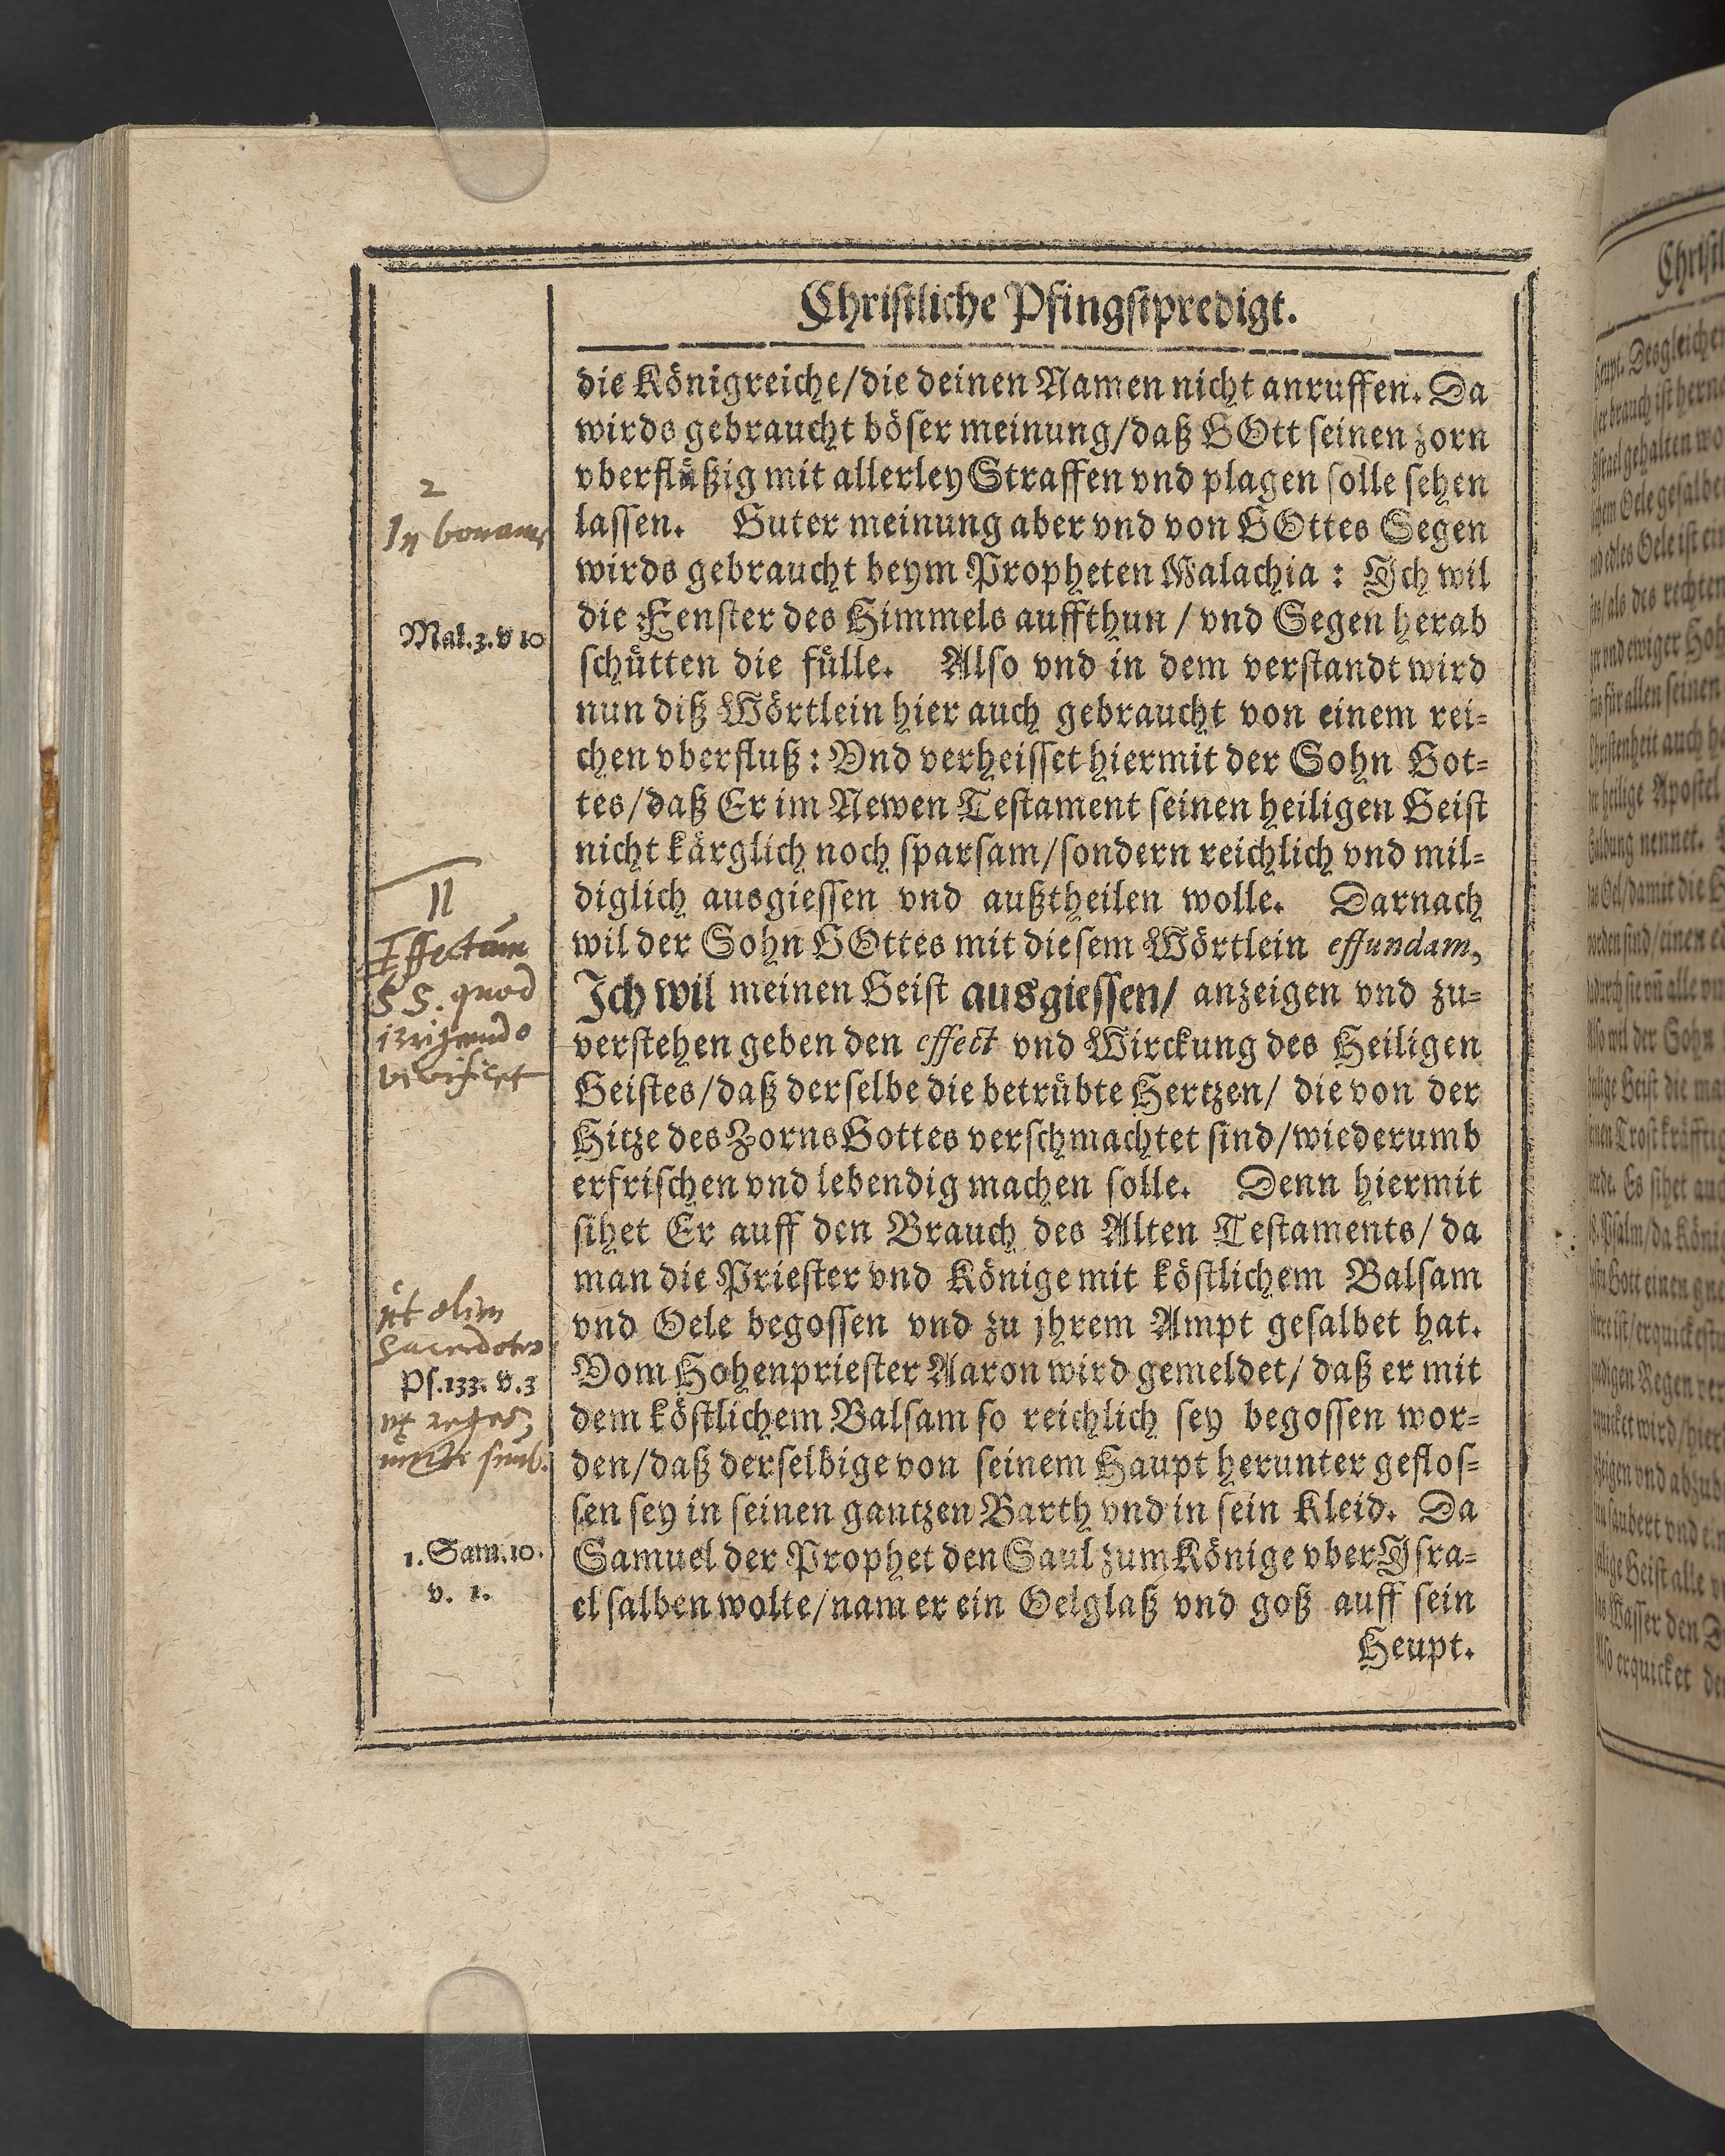 Christliche Pfingstpredigt.
die Königreiche/die deinen Namen nicht anruffen. Da
wirds gebraucht böser meinung/daß GOtt seinen zorn
vberflüßig mit allerley Straffen vnd plagen solle sehen
lassen. Guter meinung aber vnd von GOttes Segen
wirds gebraucht beym Propheten Malachia: Ich wil
die Fenster des Himmels auffthun / vnd Segen herab
schütten die fülle. Also vnd in dem verstandt wird
nun diß Wörtlein hier auch gebraucht von einem rei-
chen vberfluß: Vnd verheisset hiermit der Sohn Got-
tes/daß Er im Newen Testament seinen heiligen Geist
nicht kärglich noch sparsam/sondern reichlich vnd mil-
diglich ausgiessen vnd außtheilen wolle. Darnach
wil der Sohn GOttes mit diesem Wörtlein effundam,
Ich wil meinen Geist ausgiessen/ anzeigen vnd zu-
verstehen geben den effect vnd Wirckung des Heiligen
Geistes/daß derselbe die betrübte Hertzen/ die von der
Hitze des Zorns Gottes verschmachtet sind/wiederumb
erfrischen vnd lebendig machen solle. Denn hiermit
sihet Er auff den Brauch des Alten Testaments/ da
man die Priester vnd Könige mit köstlichem Balsam
vnd Oele begossen vnd zu jhrem Ampt gesalbet hat.
Vom Hohenpriester Aaron wird gemeldet/ daß er mit
dem köstlichem Balsam so reichlich sey begossen wor-
den/daß derselbige von seinem Haupt herunter geflos-
sen sey in seinen gantzen Barth vnd in sein Kleid. Da
Samuel der Prophet den Saul zum Könige vber Isra-
el salben wolte/nam er ein Oelglaß vnd goß auff sein
Heupt.
2
In bonam
Mal. 3. v 10
II
Effectum
S S. quod
irrigando
vivificet
ut olim
sacerdotes
Ps. 133. v. 3
et reges
uncti sunt.
1. Sam. 10.
v. 1.